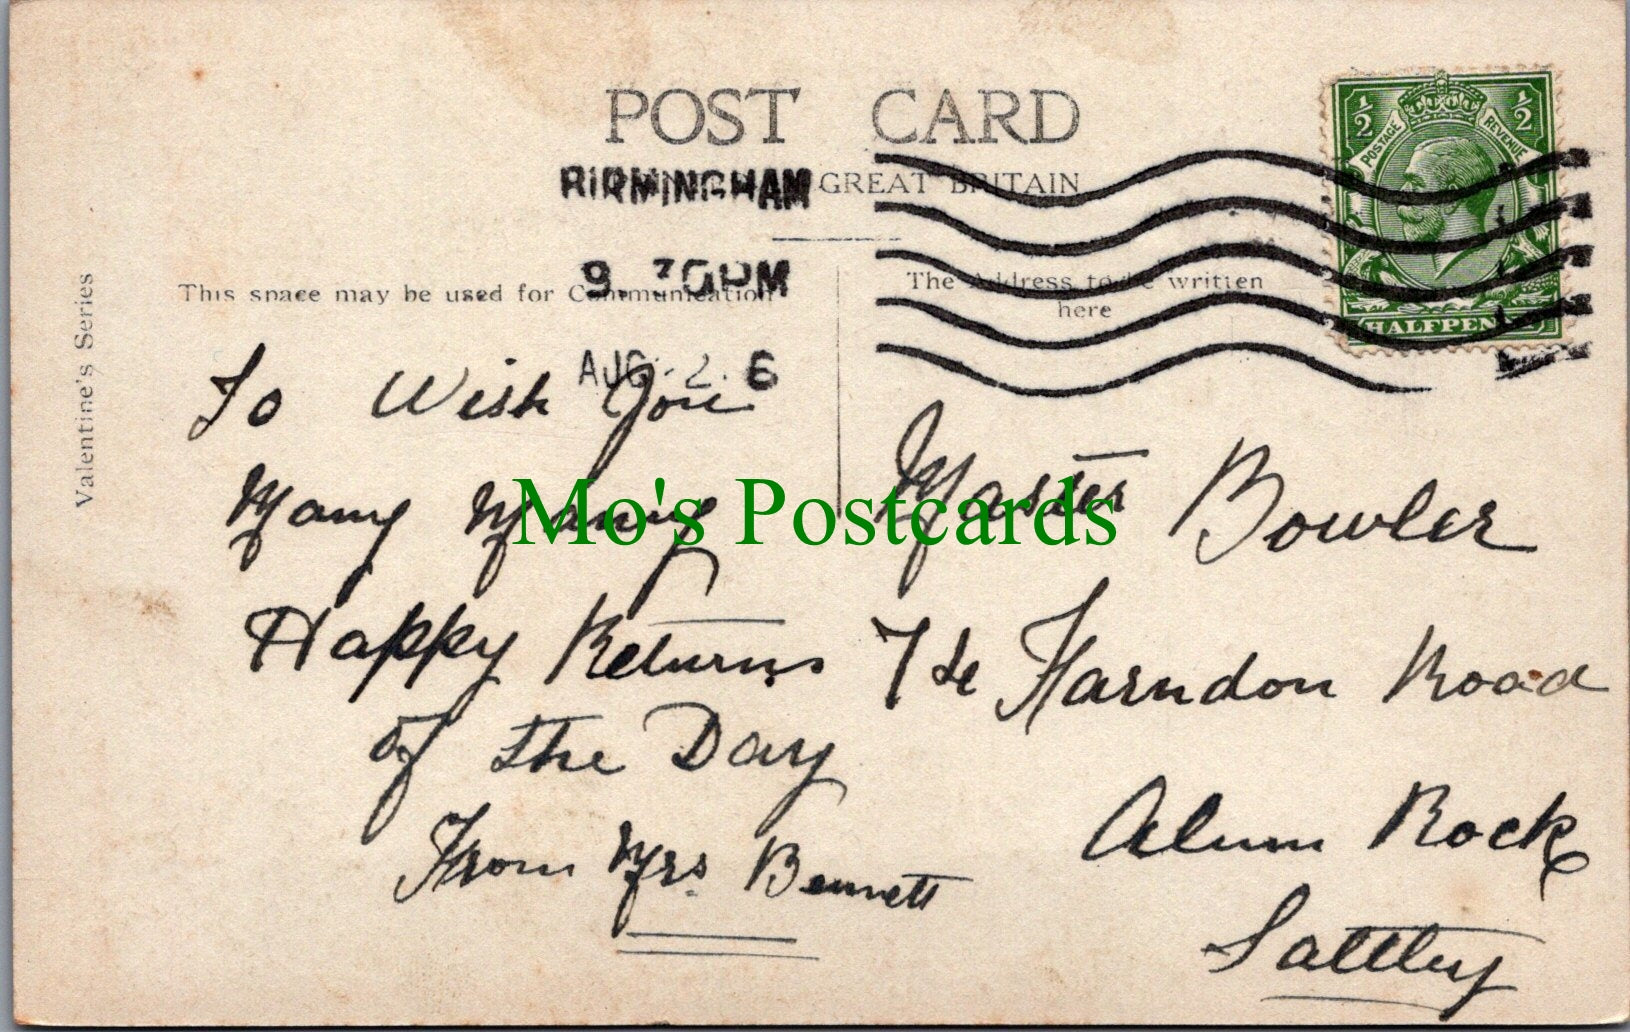 POST CARD
BIRMINGHAM
GREAT BRITAIN
9. 30PM
This space may be used for Communication
The Address to be written
here
AUG 2 6
Valentine's Series
½ POSTAGE REVENUE ½
HALFPENNY
To Wish You
Many Many
Happy Returns
of the Day
From Mrs Bennett
Master Bowler
Farndon Road
Alum Rock
Saltley
Mo's Postcards